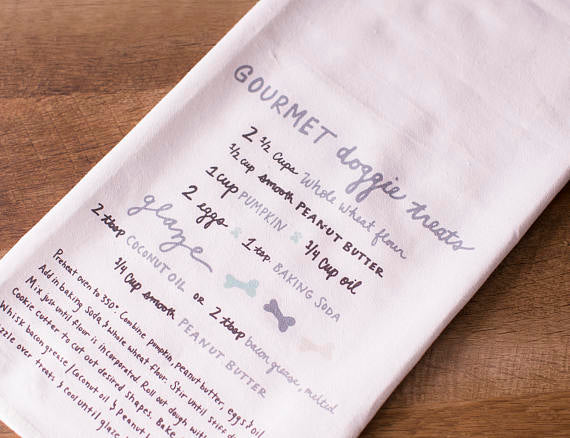 GOURMET doggie treats
2 1/2 Cups Whole wheat flour
1/2 cup smooth PEANUT BUTTER
1 cup PUMPKIN & 3/4 Cup oil
2 eggs & 1 tsp BAKING SODA
glaze
2 tbsp COCONUT OIL or 2 tbsp bacon grease, melted
3/4 Cup smooth PEANUT BUTTER
Preheat oven to 350°. Combine pumpkin, peanut butter, eggs & oil
Add in baking soda & whole wheat flour. Stir until stiff
Mix just until flour is incorporated. Roll out dough with
Cookie cutter to cut out desired shapes. Bake
Whisk bacon grease/coconut oil & peanut
over treats & cool until
glaze